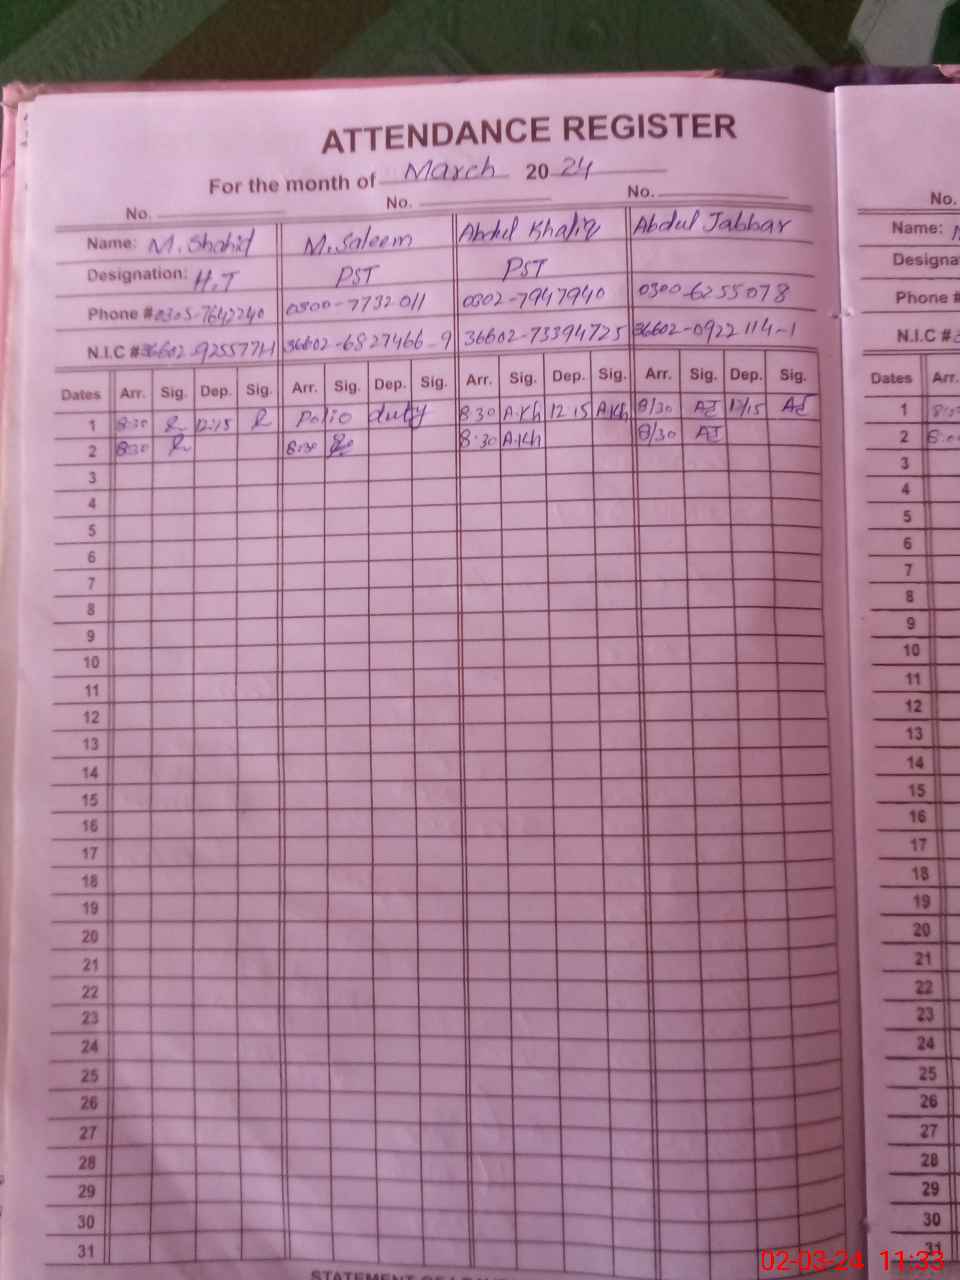 ATTENDANCE REGISTER
For the month of March 2024
No. No. No. No.
Name: M. Shahid M. Saleem Abdul Khaliq Abdul Jabbar Name:
Designation: H.T PST PST Designa
Phone # 0305-7642240 0300-7732011 0302-7947940 0300-6255078 Phone #
N.I.C # 36602-6827466-9 36602-73394725 36602-0922114-1 N.I.C #
Dates Arr. Sig. Dep. Sig. Arr. Sig. Dep. Sig. Arr. Sig. Dep. Sig. Arr. Sig. Dep. Sig. Dates Arr.
1 8:30 12:15 Polio duty 8:30 A.Kh 12:15 A.Kh 8/30 AJ 12/15 AJ 1
2 8:30 8:30 8:30 A.Kh 8/30 AJ 2
3 3
4 4
5 5
6 6
7 7
8 8
9 9
10 10
11 11
12 12
13 13
14 14
15 15
16 16
17 17
18 18
19 19
20 20
21 21
22 22
23 23
24 24
25 25
26 26
27 27
28 28
29 29
30 30
31 31
02-03-24 11:33
STATEMENT OF